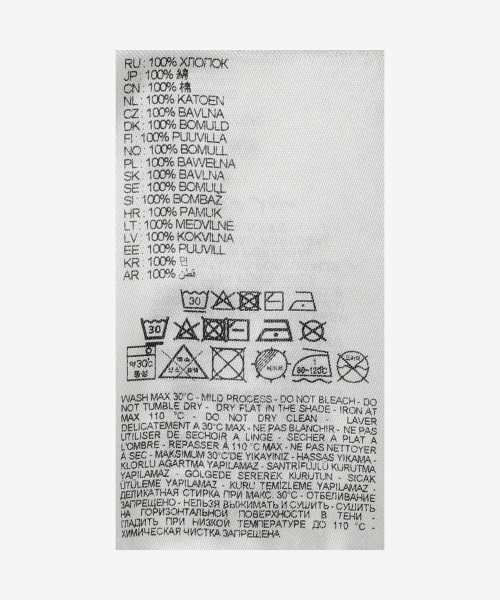 RU: 100% ХЛОПОК
JP: 100% 綿
CN: 100% 棉
NL: 100% KATOEN
CZ: 100% BAVLNA
DK: 100% BOMULD
FI: 100% PUUVILLA
NO: 100% BOMULL
PL: 100% BAWEŁNA
SK: 100% BAVLNA
SE: 100% BOMULL
SI: 100% BOMBAŽ
HR: 100% PAMUK
LT: 100% MEDVILNE
LV: 100% KOKVILNA
EE: 100% PUUVILL
KR: 100% 면
AR: 100% قطن
30
30
약30°C
중성
80-120°C
WASH MAX 30°C - MILD PROCESS - DO NOT BLEACH - DO
NOT TUMBLE DRY - DRY FLAT IN THE SHADE - IRON AT
MAX 110 °C - DO NOT DRY CLEAN - LAVER
DELICATEMENT A 30°C MAX - NE PAS BLANCHIR - NE PAS
UTILISER DE SECHOIR A LINGE - SECHER A PLAT A
L'OMBRE - REPASSER À 110 °C MAX - NE PAS NETTOYER
A SEC - MAKSIMUM 30°C'DE YIKAYINIZ - HASSAS YIKAMA-
KLORLU AĞARTMA YAPILAMAZ - SANTRİFÜJLÜ KURUTMA
YAPILAMAZ - GÖLGEDE SEREREK KURUTUN - SICAK
ÜTÜLEME YAPILAMAZ - KURU TEMİZLEME YAPILAMAZ -
ДЕЛИКАТНАЯ СТИРКА ПРИ МАКС. 30°C - ОТБЕЛИВАНИЕ
ЗАПРЕЩЕНО - НЕЛЬЗЯ ВЫЖИМАТЬ И СУШИТЬ - СУШИТЬ
НА ГОРИЗОНТАЛЬНОЙ ПОВЕРХНОСТИ В ТЕНИ -
ГЛАДИТЬ ПРИ НИЗКОЙ ТЕМПЕРАТУРЕ ДО 110 °C -
ХИМИЧЕСКАЯ ЧИСТКА ЗАПРЕЩЕНА